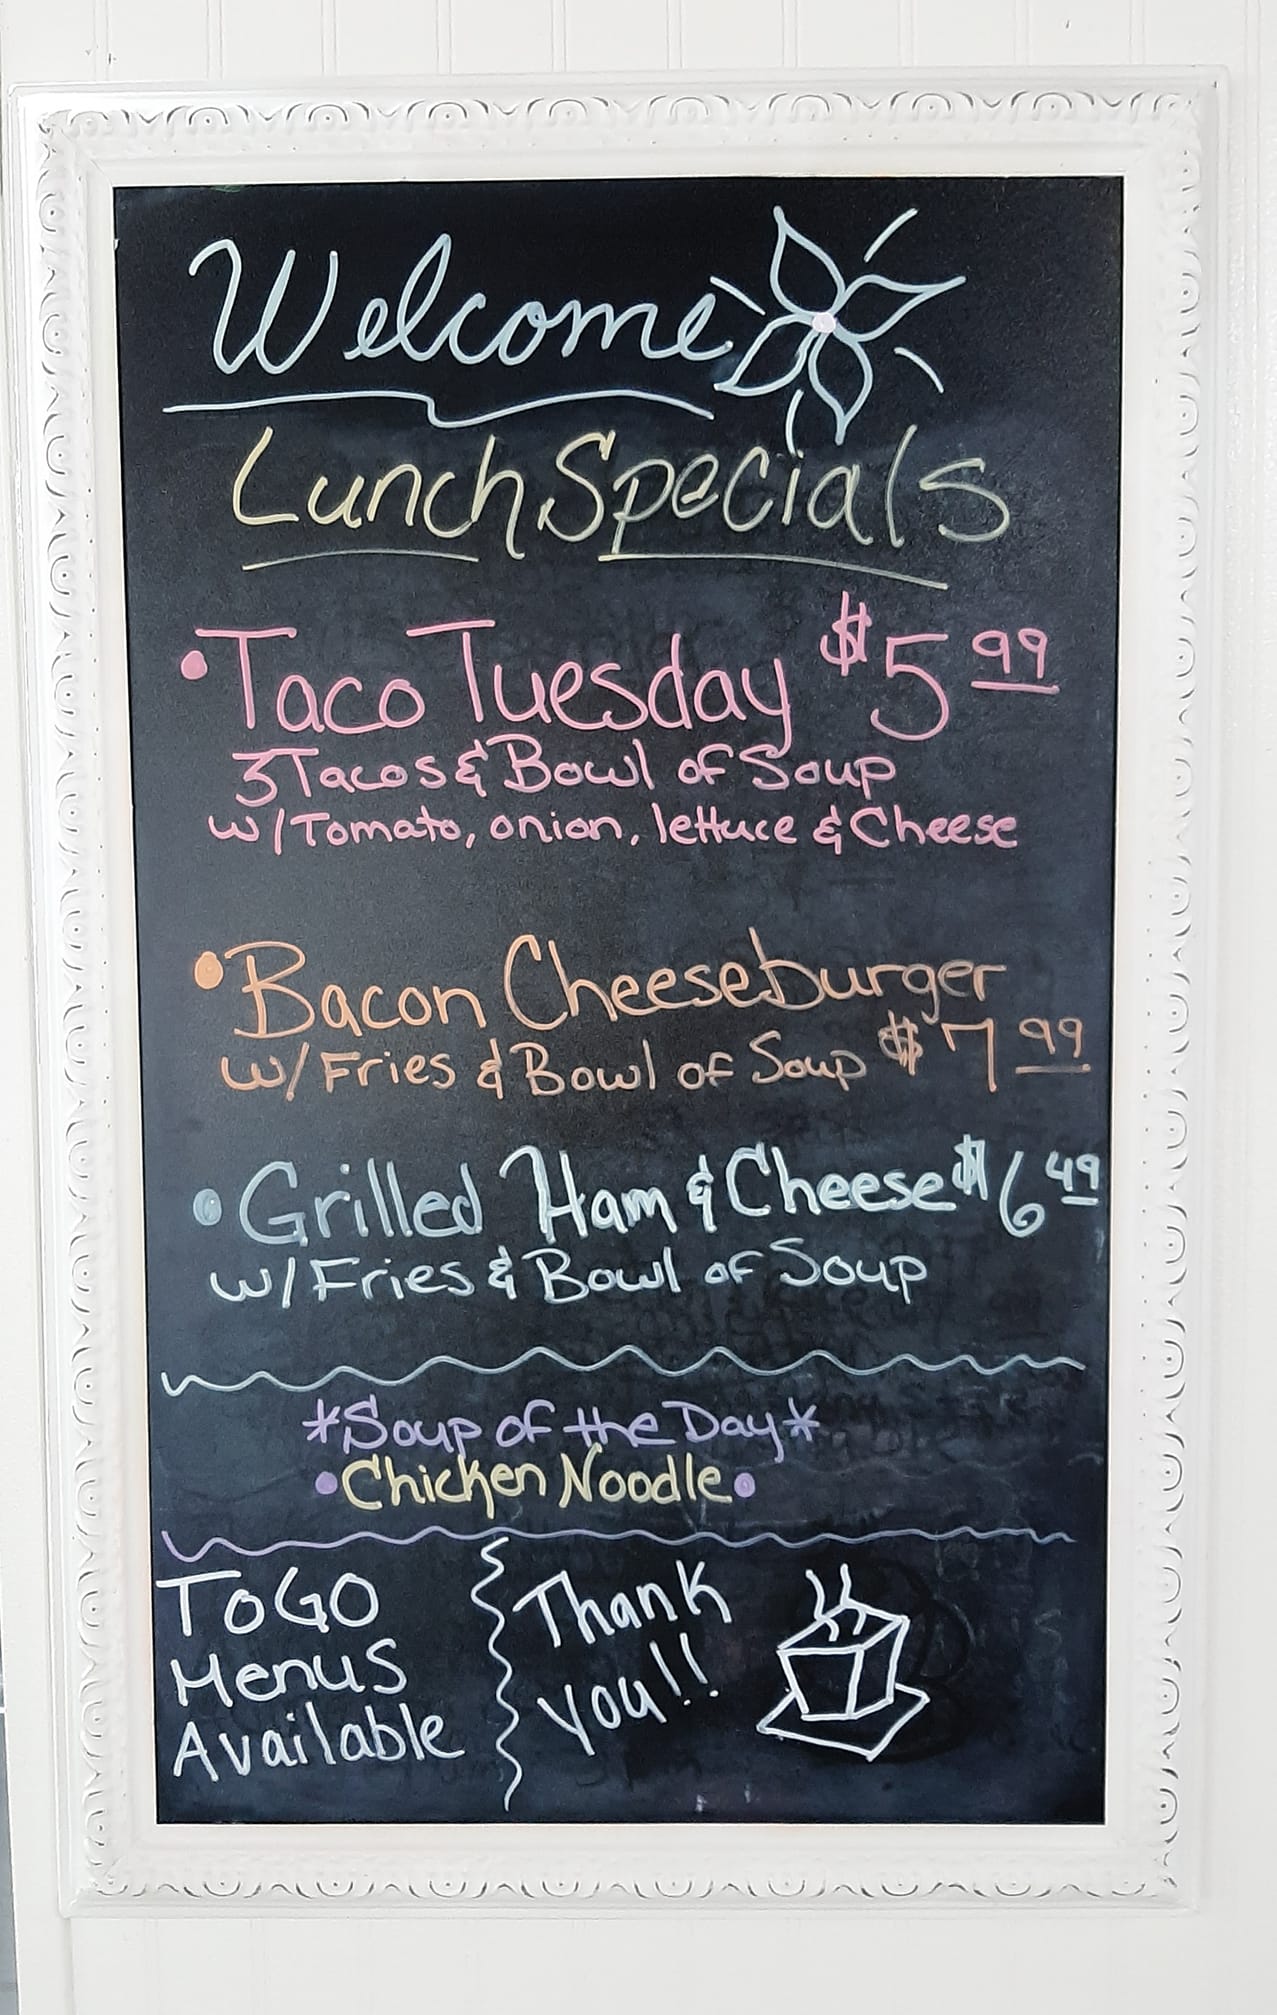 Welcome
Lunch Specials
• Taco Tuesday $5 99
3 Tacos & Bowl of Soup
w/Tomato, onion, lettuce & Cheese
• Bacon Cheeseburger
w/Fries & Bowl of Soup $7 99
• Grilled Ham & Cheese $6 49
w/Fries & Bowl of Soup
*Soup of the Day*
• Chicken Noodle •
ToGO
Menus
Available
Thank
you!!